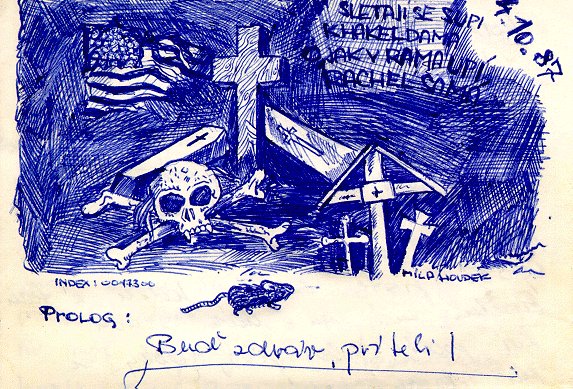 SLETAJÍ SE SUPI
K HAKELDAMA
JAK V RAMA ÚPÍ
RACHEL SAMA
.10.87
INDEX: 0017300
MILA HOUDEK
PROLOG:
Buď zdráv, příteli!